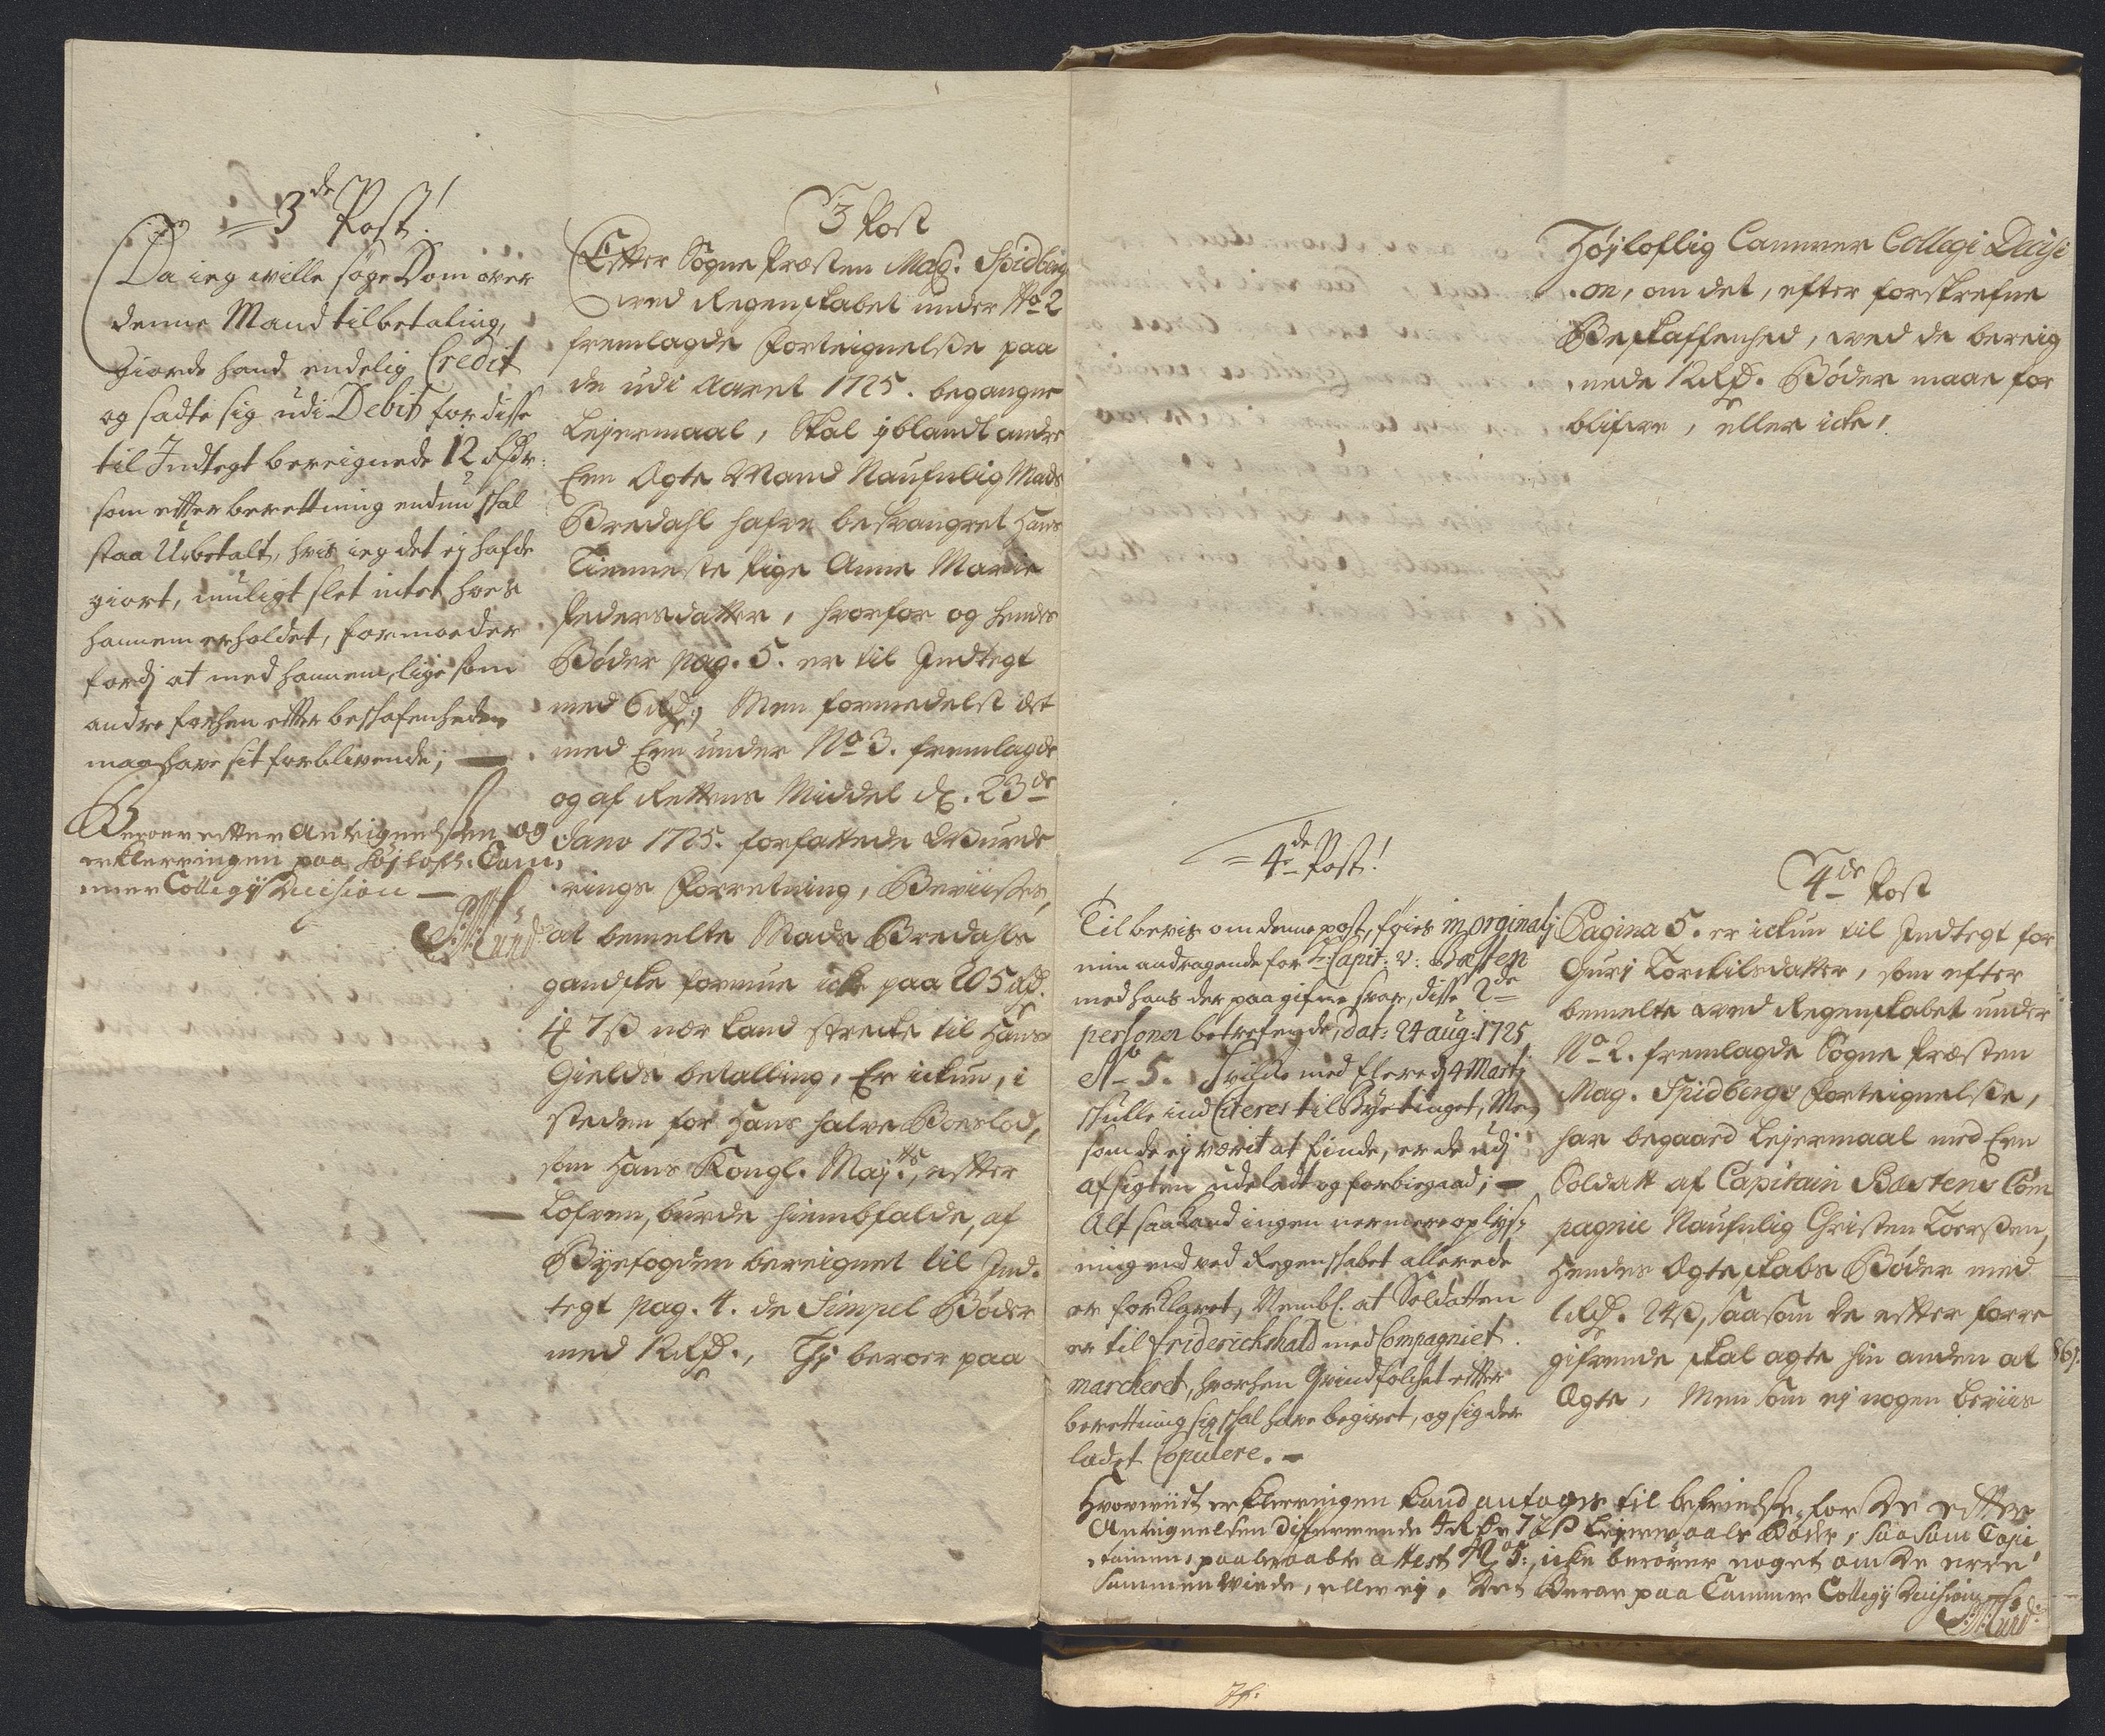 3de Post!
Da ieg wille søge Dom over
denne Mand til betaling,
giorde hand endelig Credit
og sadte sig udi Debit for disse
til Indtegt bereignede 12 Rdr:
som efter berettning endnu skal
staa Ubetalt, hvis ieg det ej hafde
giort, muligt slet intet hoes
hannem erholdet, formoeder
fordj at med hannem, lige som
andre forhen efter beskafenheden
maa have sit forblivende;
Beroer efter Antegnelsen og
erkleringen paa høylofl: Cam,
mer Collegij Decision
3 Post
Efter Sogne Præsten Mag. Spidberg
ved Regenskabet under No 2
fremlagde Forteignelse paa
de udi Aaret 1725. begangne
Lejermaal, Skal iblandt andre
Een Ægte Mand Naufnlig Mads
Bredahl hafve besvangret hans
Tienneste Pige Anne Marie
Pedersdatter, hvorfor og hendes
Bøder pag. 5. er til Indtegt
med 6 Rd, Men formedelst det
med Een under No 3. fremlagde
og af Rettens Middel d. 23de
Janv 1725. forfattede Wurde
rings Forretning, Beviises,
at bemelte Mads Bredahls
gandske formue icke paa 205 Rd.
4 7 s nær kand strecke til hans
Gields betalling, Er ickun, i
steden for hans halve Boeslod,
som Hans Kongl. Mayts, efter
Lofven, burde hiembfalde, af
Byefogden bereignet til Ind-
tegt pag. 4. de Simpel Bøder
med 12 Rd., Thj beroer paa
Højloflig Cammer Collegi Decisi
on, om det, efter forskrefne
Beskaffenhed, ved de bereig
nede 12 Rd. Bøder maae for
blifve, eller icke!
4de Post!
Til bevis om denne post, føies in originalj
min andragende for Hr Capit: v: Basten
med hans der paa gifne svar, disse 2de
personer betrefende, dat: 24 aug: 1725,
No 5. hvilke med flere d 4 Martj
skulle ind Citeres til Byetinget, Men
som de ej værit at finde, er de udj
afsigten udeladt og forbiegaad;
Alt saa kand ingen nermere oplys-
ning end ved Regenskabet allerede
er forklaret, Nembl. at Soldatten
er til friderickshald med Compagniet
marcheret, hvorhen Qvindfolchet efter
berettning sig skal have begivet, og sig der
ladet Copulere.
4de Post
Pagina 5. er ickun til Indtegt for
Guri Torckilsdatter, som efter
bemelte ved Regenskabet under
No 2. fremlagde Sogne Præsten
Mag. Spidbergs Forteignelse,
har begaaed Lejermaal med Een
Soldatt af Capitain Bastens Com
pagnie Naufnlig Christen Toersen,
hendes Ægteskabs Bøder med
1 Rd. 24 s, saasom de efter forre
gifvende skal agte hin anden at
Ægte, Men som ej nogen beviis
861.
Hvorwit erkleringen kand antages til befrielse for de efter
Antegnelsen differerende 4 Rdr 72 s Leyermaals Bøder, saasom Capi
tainens paaberaabte attest No 5:, icke berører noget om de ere
sammenviede, eller ej. Det Beroer paa Cammer Collegij Decision